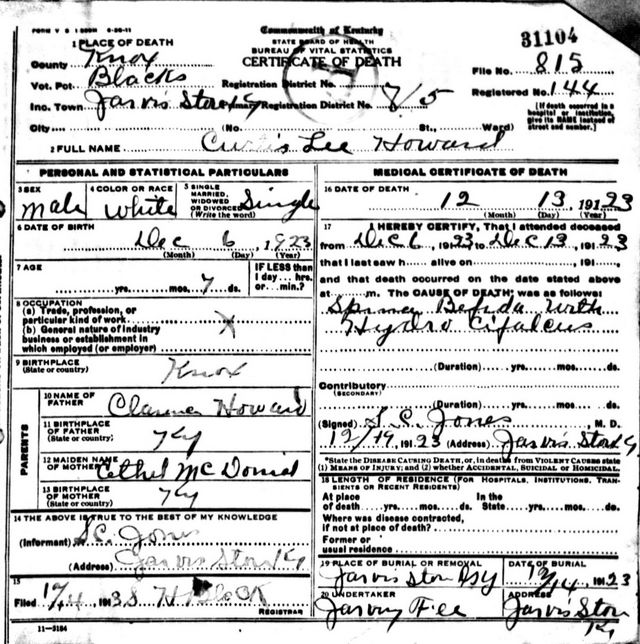 FORM V S 1
Commonwealth of Kentucky
STATE BOARD OF HEALTH
BUREAU OF VITAL STATISTICS
CERTIFICATE OF DEATH
31104
1 PLACE OF DEATH
County Knox
Vot. Pct. Blacks
Registration District No.
File No. 815
Inc. Town Jarvis Store Ky Registration District No. 715
Registered No. 144
City (No. St., Ward)
[If death occurred in a hospital or institution, give its NAME instead of street and number.]
2 FULL NAME Curtis Lee Howard
PERSONAL AND STATISTICAL PARTICULARS
3 SEX Male
4 COLOR OR RACE White
5 SINGLE, MARRIED, WIDOWED OR DIVORCED (Write the word) Single
6 DATE OF BIRTH
Dec 6, 1923
(Month) (Day) (Year)
7 AGE
yrs. mos. 7 ds.
IF LESS than 1 day... hrs. or... min.?
8 OCCUPATION
(a) Trade, profession, or
particular kind of work X
(b) General nature of industry
business or establishment in
which employed (or employer)
9 BIRTHPLACE
(State or country) Knox
PARENTS
10 NAME OF
FATHER Clarence Howard
11 BIRTHPLACE
OF FATHER
(State or country) Ky
12 MAIDEN NAME
OF MOTHER Ethel McDonid
13 BIRTHPLACE
OF MOTHER
(State or country) Ky
14 THE ABOVE IS TRUE TO THE BEST OF MY KNOWLEDGE
(Informant) S.C. Jones
(Address) Jarvis Store Ky
15
Filed 12/14 1913
REGISTRAR
11-3184
MEDICAL CERTIFICATE OF DEATH
16 DATE OF DEATH 12 13, 19123
(Month) (Day) (Year)
17 I HEREBY CERTIFY, That I attended deceased
from Dec 6, 19123 to Dec 13, 19123
that I last saw h alive on , 191
and that death occurred on the date stated above
at m. The CAUSE OF DEATH was as follows:
Spinna Befida With
Hydro Cifalcus
(Duration) yrs. mos. ds.
Contributory
(SECONDARY)
(Duration) yrs. mos. ds.
(Signed) S.C. Jones M. D.
12/14, 19123 (Address) Jarvis Store Ky
*State the DISEASE CAUSING DEATH, or, in deaths from VIOLENT CAUSES state
(1) MEANS OF INJURY; and (2) whether ACCIDENTAL, SUICIDAL or HOMICIDAL
18 LENGTH OF RESIDENCE (FOR HOSPITALS, INSTITUTIONS, TRANSIENTS OR RECENT RESIDENTS)
At place of death yrs. mos. ds. In the State yrs. mos. ds.
Where was disease contracted,
if not at place of death?
Former or
usual residence
19 PLACE OF BURIAL OR REMOVAL
Jarvis Store Ky
DATE OF BURIAL
12/14, 19123
20 UNDERTAKER
Jarvy Fee
ADDRESS
Jarvis Store
Ky